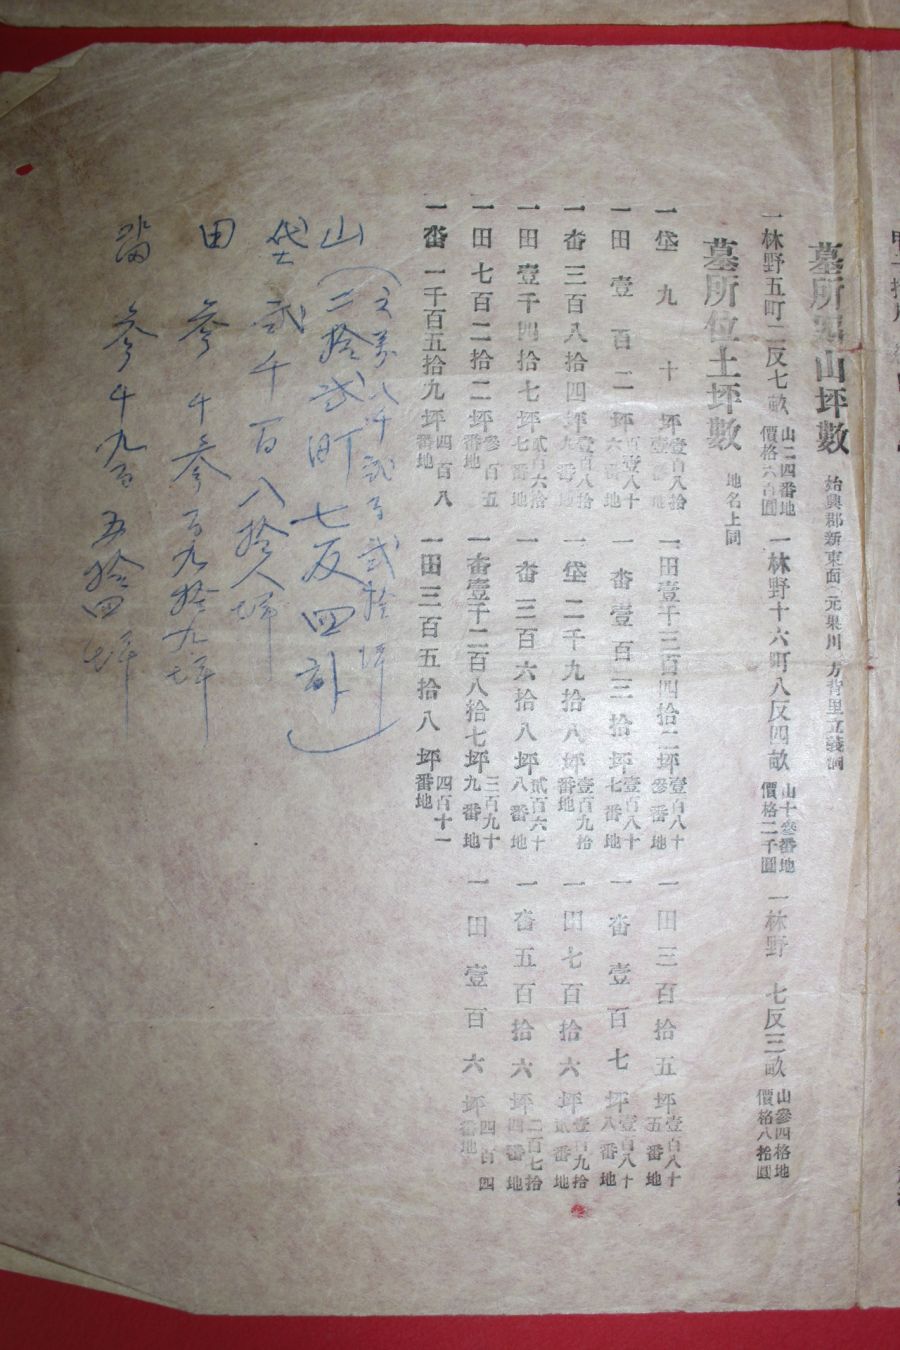 墓所 山坪數 始興郡新東面 元果川 方背里立義洞
一林野五町二反七畝 山二四番地 價格六百圓 一林野十六町八反四畝 山十參番地 價格二千圓 一林野 七反三畝 山參四格地 價格八拾圓
墓所位土坪數 地名上同
一垈 九十坪 壹百八拾 番地 一田壹千三百四拾二坪 壹百八十參番地 一田三百拾五坪 壹百八十五番地
一田壹百二坪 百八十六番地 一畓壹百三拾坪 壹百八十七番地 一畓壹百七坪 壹百八十八番地
一畓三百八拾四坪 壹百八拾九番地 一垈二千九拾八坪 壹百九拾番地 一田七百拾六坪 壹百九拾貳番地
一田壹千四拾七坪 貳百六拾七番地 一畓三百六拾八坪 貳百六十八番地 一畓五百拾六坪 二百七拾四番地
一田七百二拾二坪 參百五番地 一畓壹千二百八拾七坪 三百九十九番地 一田壹百六坪 四百四番地
一畓一千百五拾九坪 四百八番地 一田三百五拾八坪 四百十一番地
山 八千貳百貳拾坪
二拾貳町七反四
垈 貳千百八拾八坪
田 參千參百九拾九坪
畓 參千九百五拾四坪